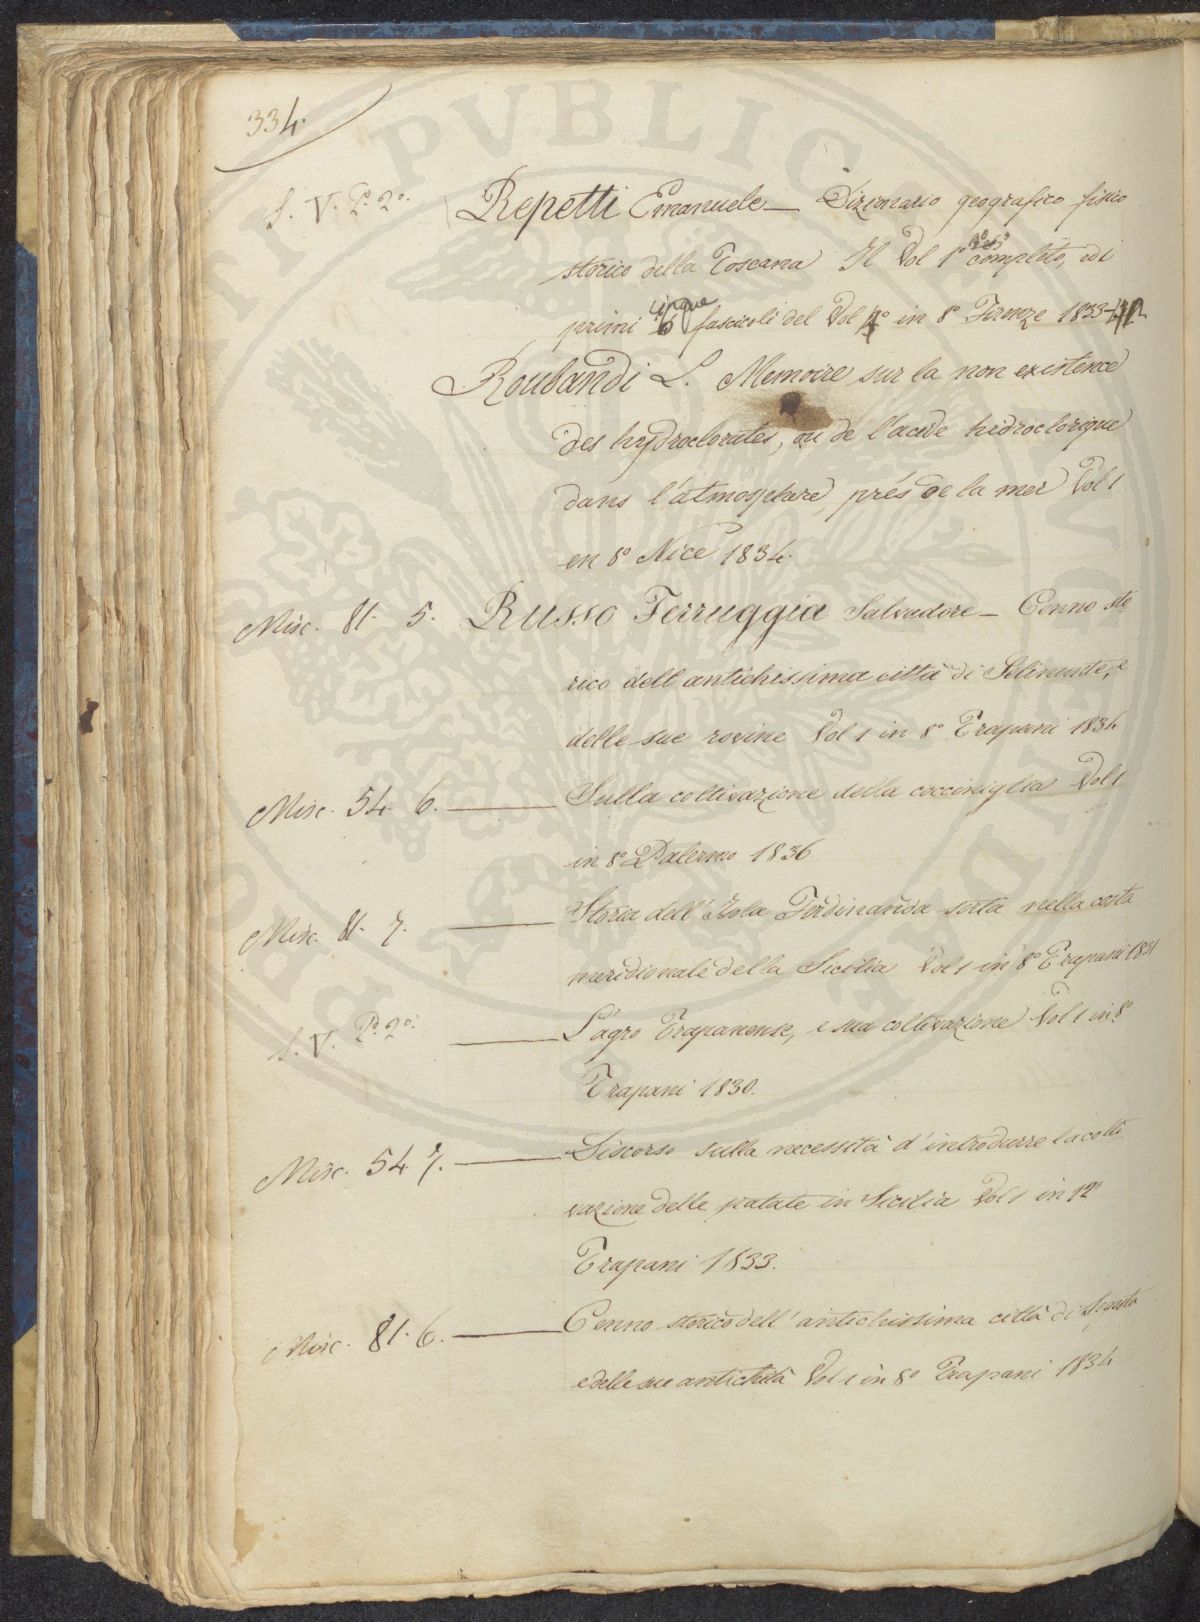 334.
S. V. P. 2º. Repetti Emanuele — Dizionario geografico fisico
storico della Toscana Il Vol 1º 2º e 3º completo, ed i
primi cinque fascicoli del Vol 4º in 8º Firenze 1833-
Roubaudi L. Memoire sur la non existence
des hydroclorates, ou de l'acide hidroclorique
dans l'atmosphere, prés de la mer Vol 1
en 8º Nice 1834.
Misc. 81. 5. Russo Ferruggia Salvadore — Cenno sto
rico dell antichissima città di Selinunte, e
delle sue rovine Vol 1 in 8º Trapani 1834
Misc. 54 6. — Sulla coltivazione della cocciniglia Vol 1
in 8º Palermo 1836
Misc. 81. 7. — Storia dell' Isola Ferdinanda sorta nella costa
meridionale della Sicilia Vol 1 in 8º Trapani 1831
S. V. P. 2º. — L'agro Trapanense, e sua coltivazione Vol 1 in 8º
Trapani 1830.
Misc. 54 7. — Discorso sulla necessità d'introdurre la colti
vazione delle patate in Sicilia Vol 1 in 12
Trapani 1833.
Misc. 81. 6. — Cenno storico dell' antichissima città di Segesta
e delle sue antichità Vol 1 in 8º Trapani 1834